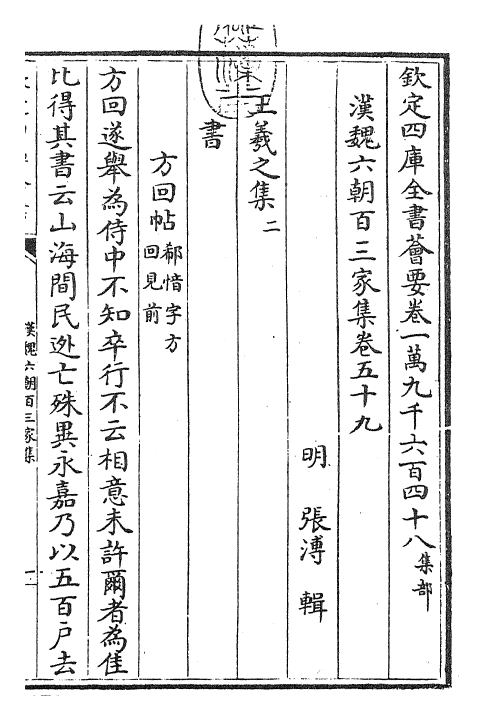 欽定四庫全書薈要卷一萬九千六百四十八集部
漢魏六朝百三家集卷五十九
明 張溥 輯
王羲之集二
書
方回帖郗愔字方回見前
方回遂舉為侍中不知卒行不云相意未許爾者為佳
比得其書云山海間民逊亡殊異永嘉乃以五百戶去
漢魏六朝百三家集
一